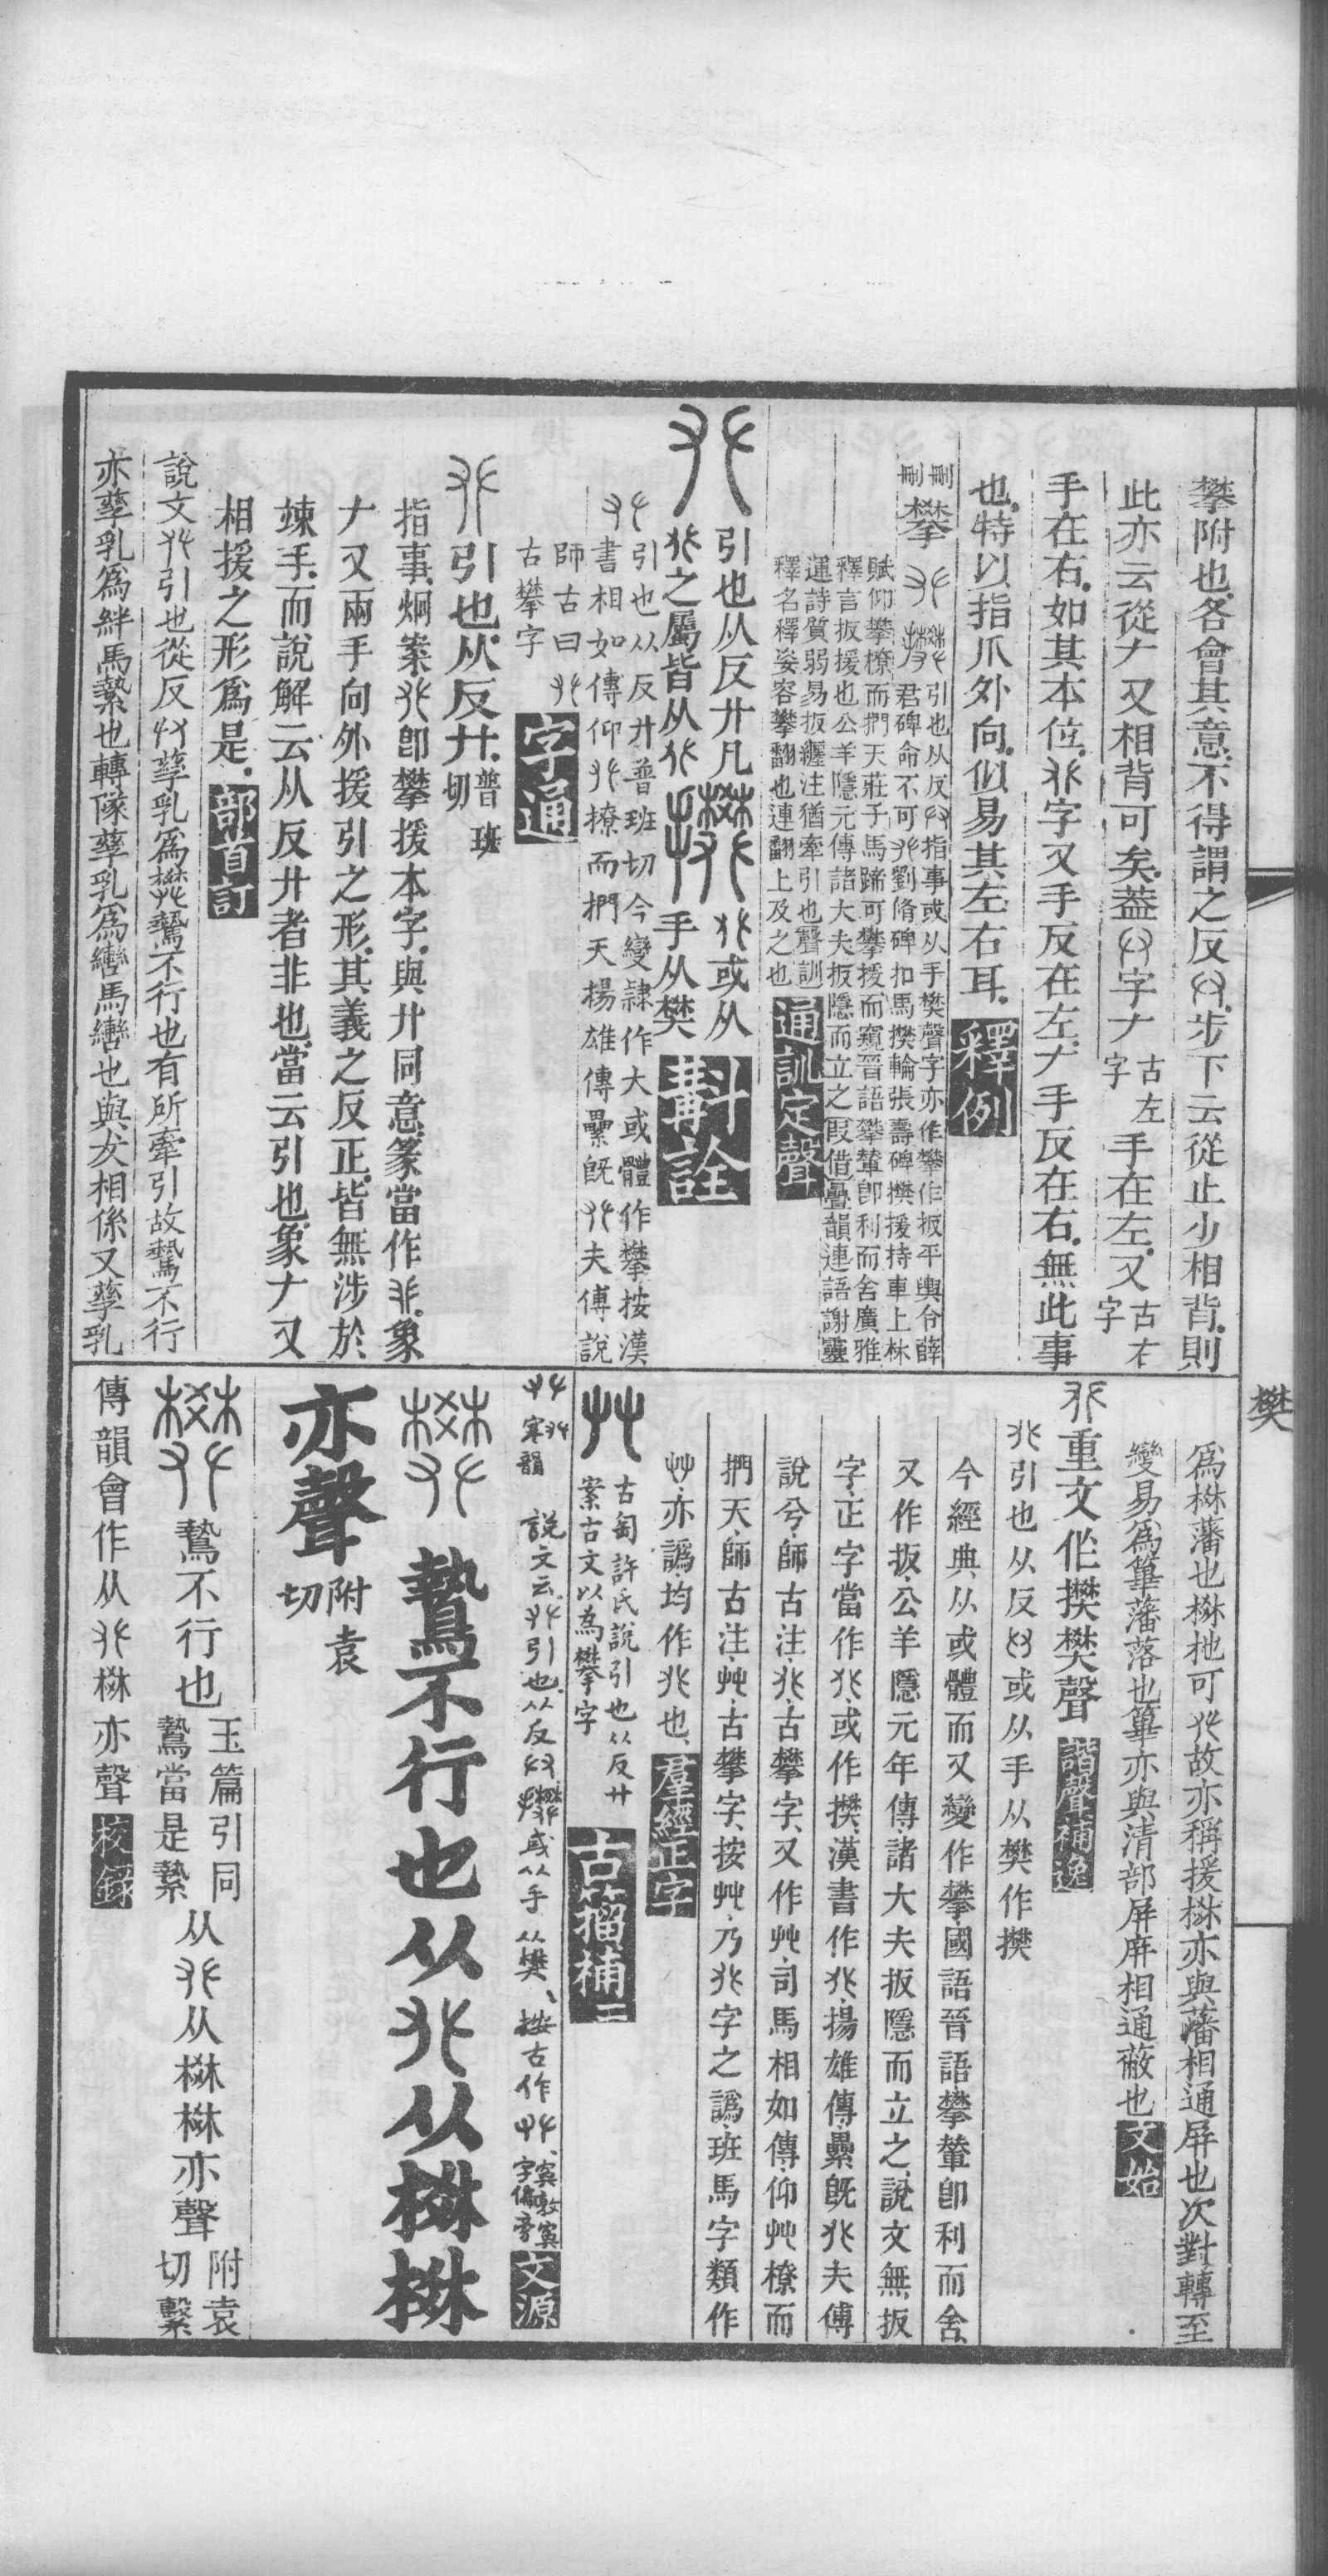 攀附也各會其意不得謂之反𠬞步下云從止少相背則
此亦云從𠂇又相背可矣葢𠬞字𠂇古左字手在左又古右字
手在右如其本位𠬜字又手反在左𠂇手反在右無此事
也特以指爪外向似易其左右耳釋例
刪刪攀𠬜 引也从反𠬞指事或从手樊聲字亦作攀作扳平輿令薛
君碑命不可𠬜劉脩碑扣馬㩥輪張壽碑㩥援持車上林
賦仰攀橑而捫天莊子馬蹄可攀援而窺晉語攀輦卽利而舍廣雅
釋言扳援也公羊隱元傳諸大夫扳隱而立之叚借疊韻連語謝靈
運詩質弱易扳纏注猶牽引也聲訓
釋名釋姿容攀翻也連翻上及之也通訓定聲
𠬜引也从反廾凡
𠬜之屬皆从𠬜 𠬜或从
手从樊斠詮
𠬜引也从反廾普班切今變隸作大或體作攀按漢
書相如傳仰𠬜撩而捫天楊雄傳纍旣𠬜夫傅說
師古曰𠬜
古攀字字通
𠬜引也从反廾普班切
指事炯案𠬜卽攀援本字與廾同意篆當作𠬜象
𠂇又兩手向外援引之形其義之反正皆無涉於
竦手而說解云从反廾者非也當云引也象𠂇又
相援之形爲是部首訂
說文𠬜引也從反𠬞孳乳爲樊騺不行也有所牽引故騺不行
亦孳乳爲絆馬縶也轉隊孳乳爲轡馬轡也與犮相係又孳乳
樊
爲棥藩也棥杝可𠬜故亦稱援棥亦與藩相通屏也次對轉至
變易爲篳藩落也篳亦與清部屏庰相通蔽也文始
𠬜重文作㩥樊聲諧聲補逸
𠬜引也从反𠬞或从手从樊作㩥
今經典从或體而又變作攀國語晉語攀輦卽利而舍
又作扳公羊隱元年傳諸大夫扳隱而立之說文無扳
字正字當作𠬜或作㩥漢書作𠬜揚雄傳纍旣𠬜夫傅
說兮師古注𠬜古攀字又作艸司馬相如傳仰艸橑而
捫天師古注艸古攀字按艸乃𠬜字之譌班馬字類作
艸亦譌均作𠬜也羣經正字
古匋許氏說引也从反廾
案古文以為攀字古籀補二
𠬜寒韻 說文云𠬜引也从反𠬞 或从手从樊按古作 字偏旁文源
樊騺不行也从𠬜从棥棥
亦聲附袁切
樊騺不行也玉篇引同騺當是縶从𠬜从棥棥亦聲附袁切繫
傳韻會作从𠬜棥亦聲校錄